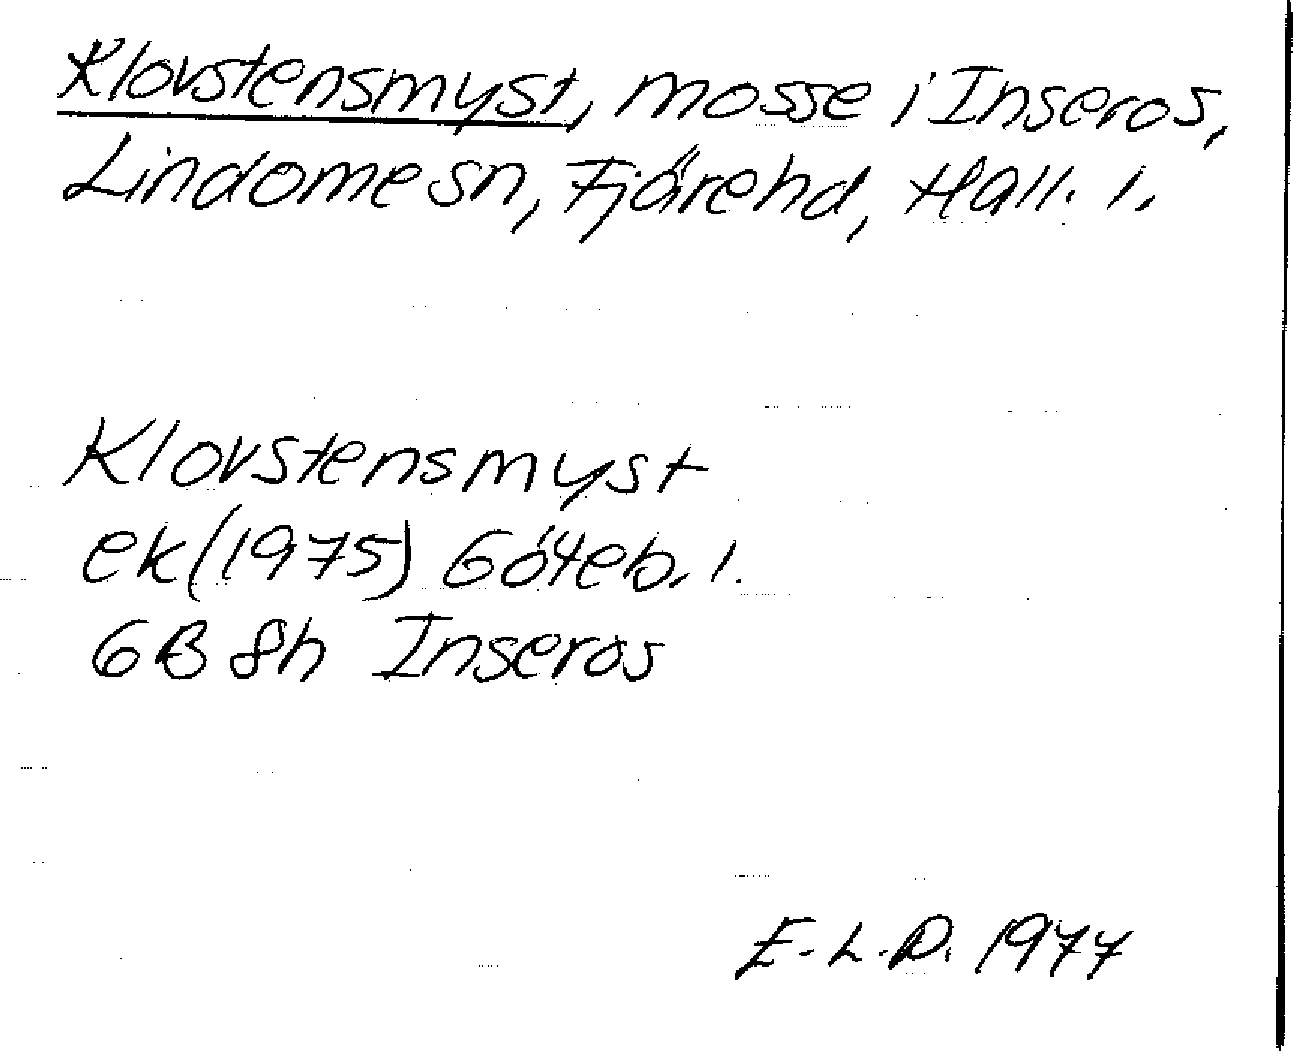 Klovstensmyst, mosse i Inseros,
Lindome sn, Fjäre hd, Hall. l.
Klovstensmyst
ek (1975) Göteb. l.
6B 8h Inseros
E.L.D. 1977